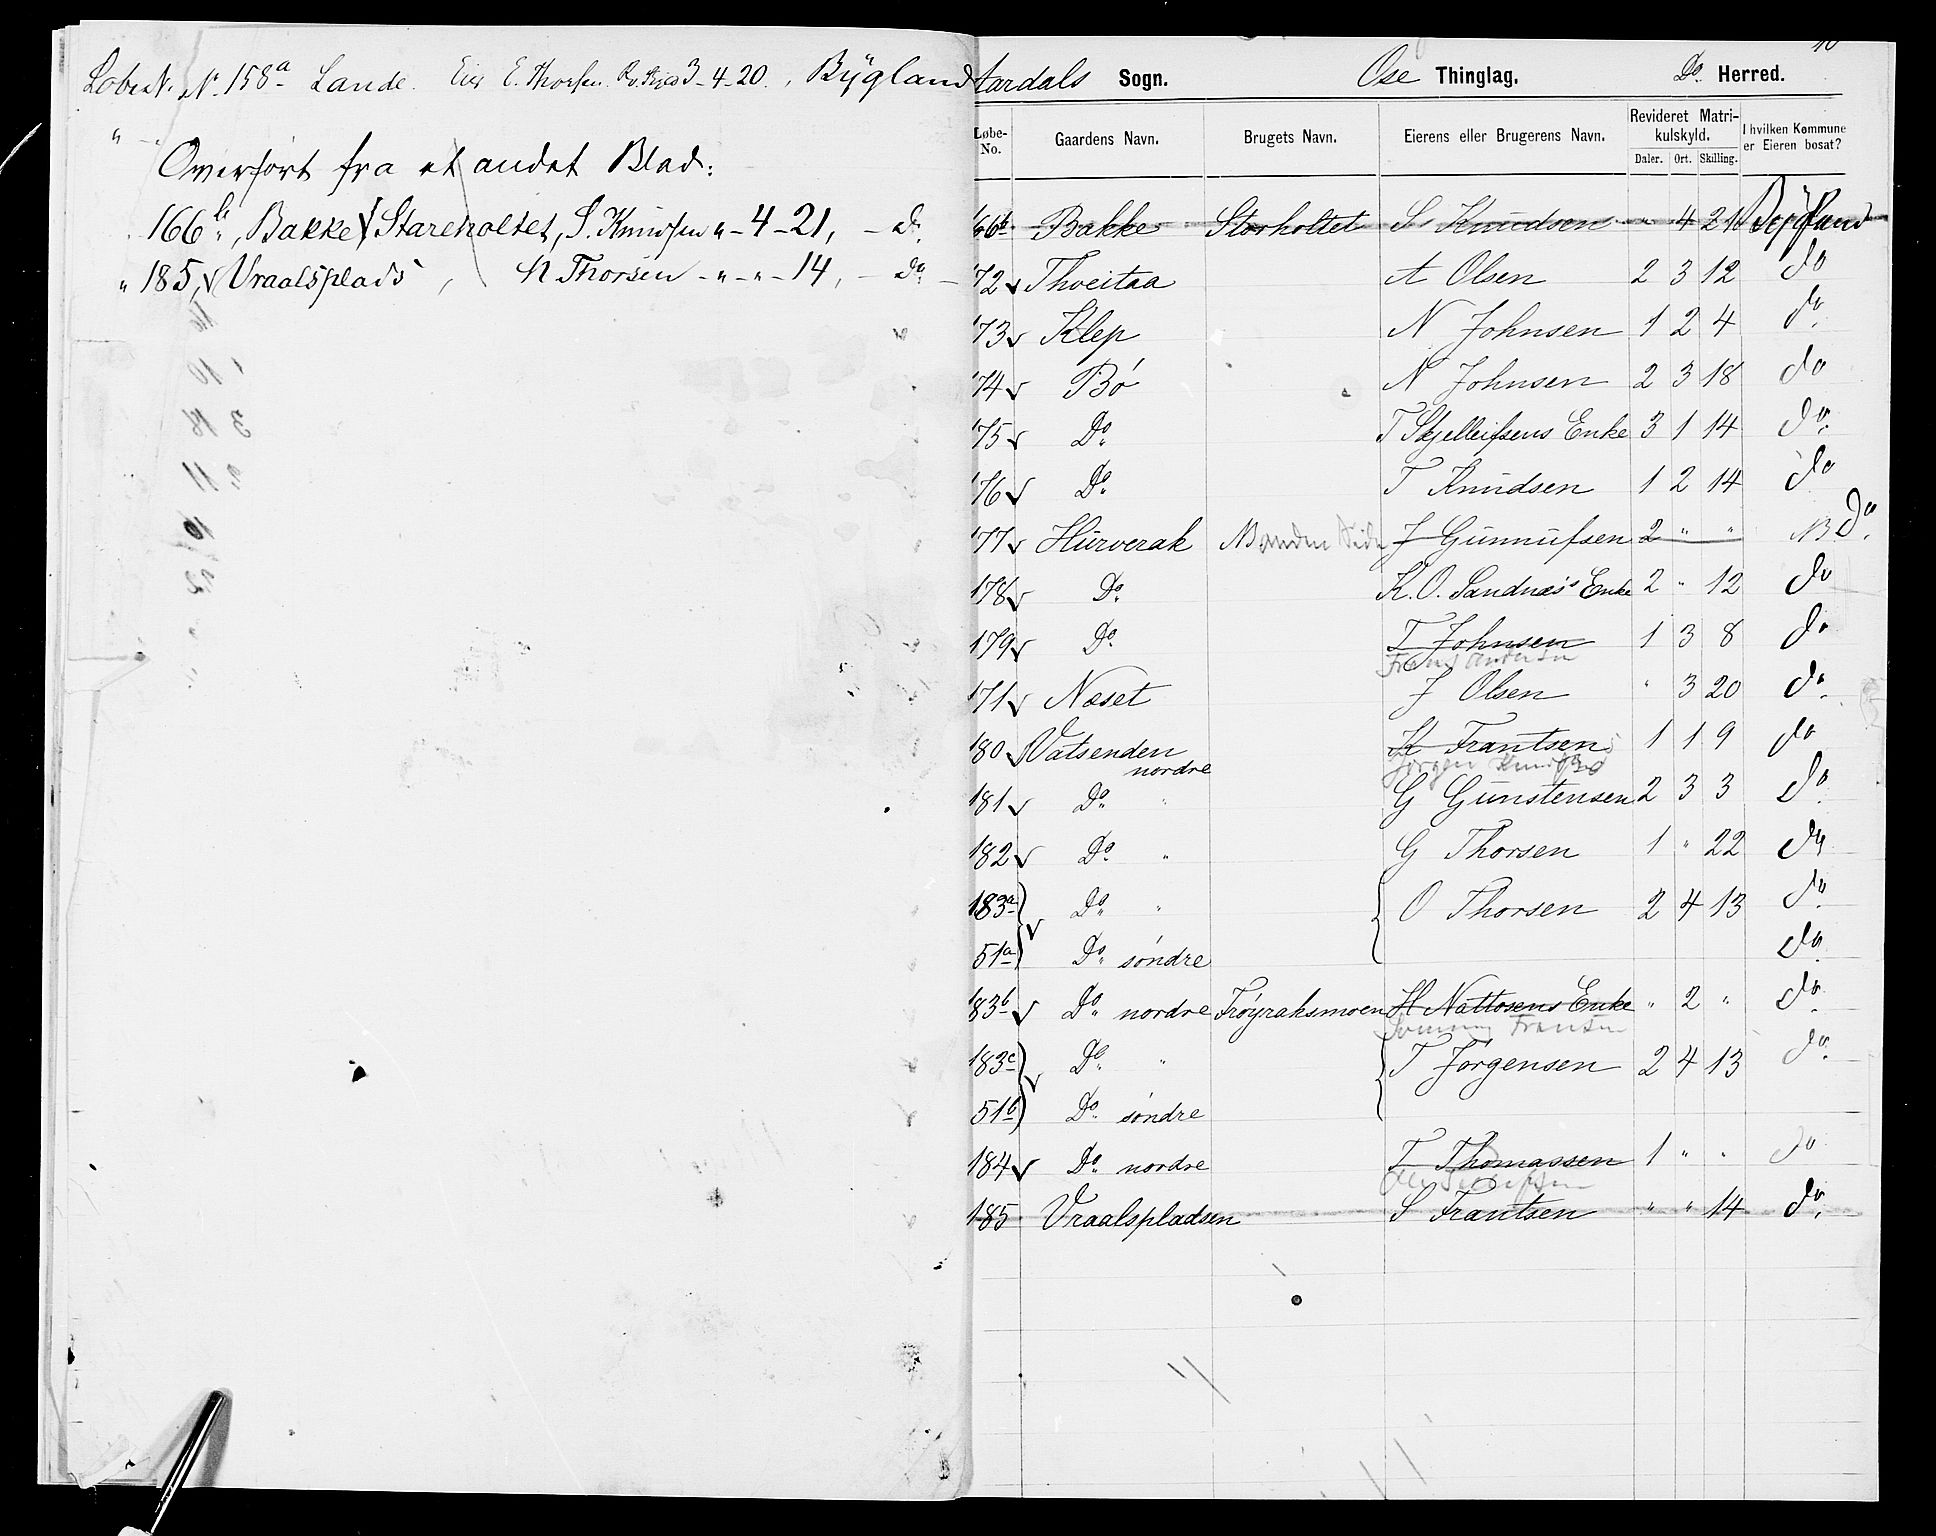 Løbe N. No. 158a Lande. Eier E. Thorsen. Rv. Skyld 3-4-20., Bÿgland
" Overført fra et andet Blad:
166b, Bakke, Stareholtet, S. Knudsen " - 4 - 21, - do.
" 185, Vraalsplads, N Thorsen - " - " - 14, - do. -
Aardals Sogn. Ose Thinglag. Do. Herred.
Løbe-No. Gaardens Navn. Brugets Navn. Eierens eller Brugerens Navn. Revideret Matrikulskyld. Daler. Ort. Skilling. I hvilken Kommune er Eieren bosat?
166b Bakke Storholtet S Knudsen " 4 21 Bygland
172 Thveitaa A Olsen 2 3 12 do
173 Klep N Johnsen 1 2 4 do.
174 Bó N Johnsen 2 3 18 do
175 Do. T Skjelleifsens Enke 3 1 14 do.
176 Do. T Knudsen 1 2 14 do
177 Hurverak NB anden Side J Gunnufsen 2 " " NB. do.
178 Do. K. O. Sandnæs's Enke 2 " 12 do
179 Do. T Johnsen 1 3 8 do
171 Næset J Olsen " 3 20 do.
180 Vatsenden nordre Frantsen 1 1 9 do
Jørgen
181 Do. " G Gunstensen 2 3 3 do.
182 Do. " G Thorsen 1 " 22 do
183a Do. " O Thorsen 2 4 13 do.
51a Do. søndre do.
183b Do. nordre Frøyraksmoen H Nattosens Enke " 2 " do.
183c Do. " T Jørgensen 2 4 13 do.
51b Do. søndre
184 Do. nordre T Thomassen 1 " " do
185 Vraalspladsen S Frantsen " " 14 do.